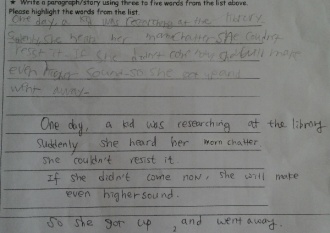 ★ Write a paragraph/story using three to five words from the list above.
Please highlight the words from the list
One day, a kid was researching at the library
she heard her mom chatter she couldn't
resist it she didn't come now she will make
even sound so she got
went away.
One day, a kid was researching at the library
Suddenly she heard her mom chatter
she couldn't resist it
If she didn't come now, she will make
even higher sound.
So she got up, and went away.